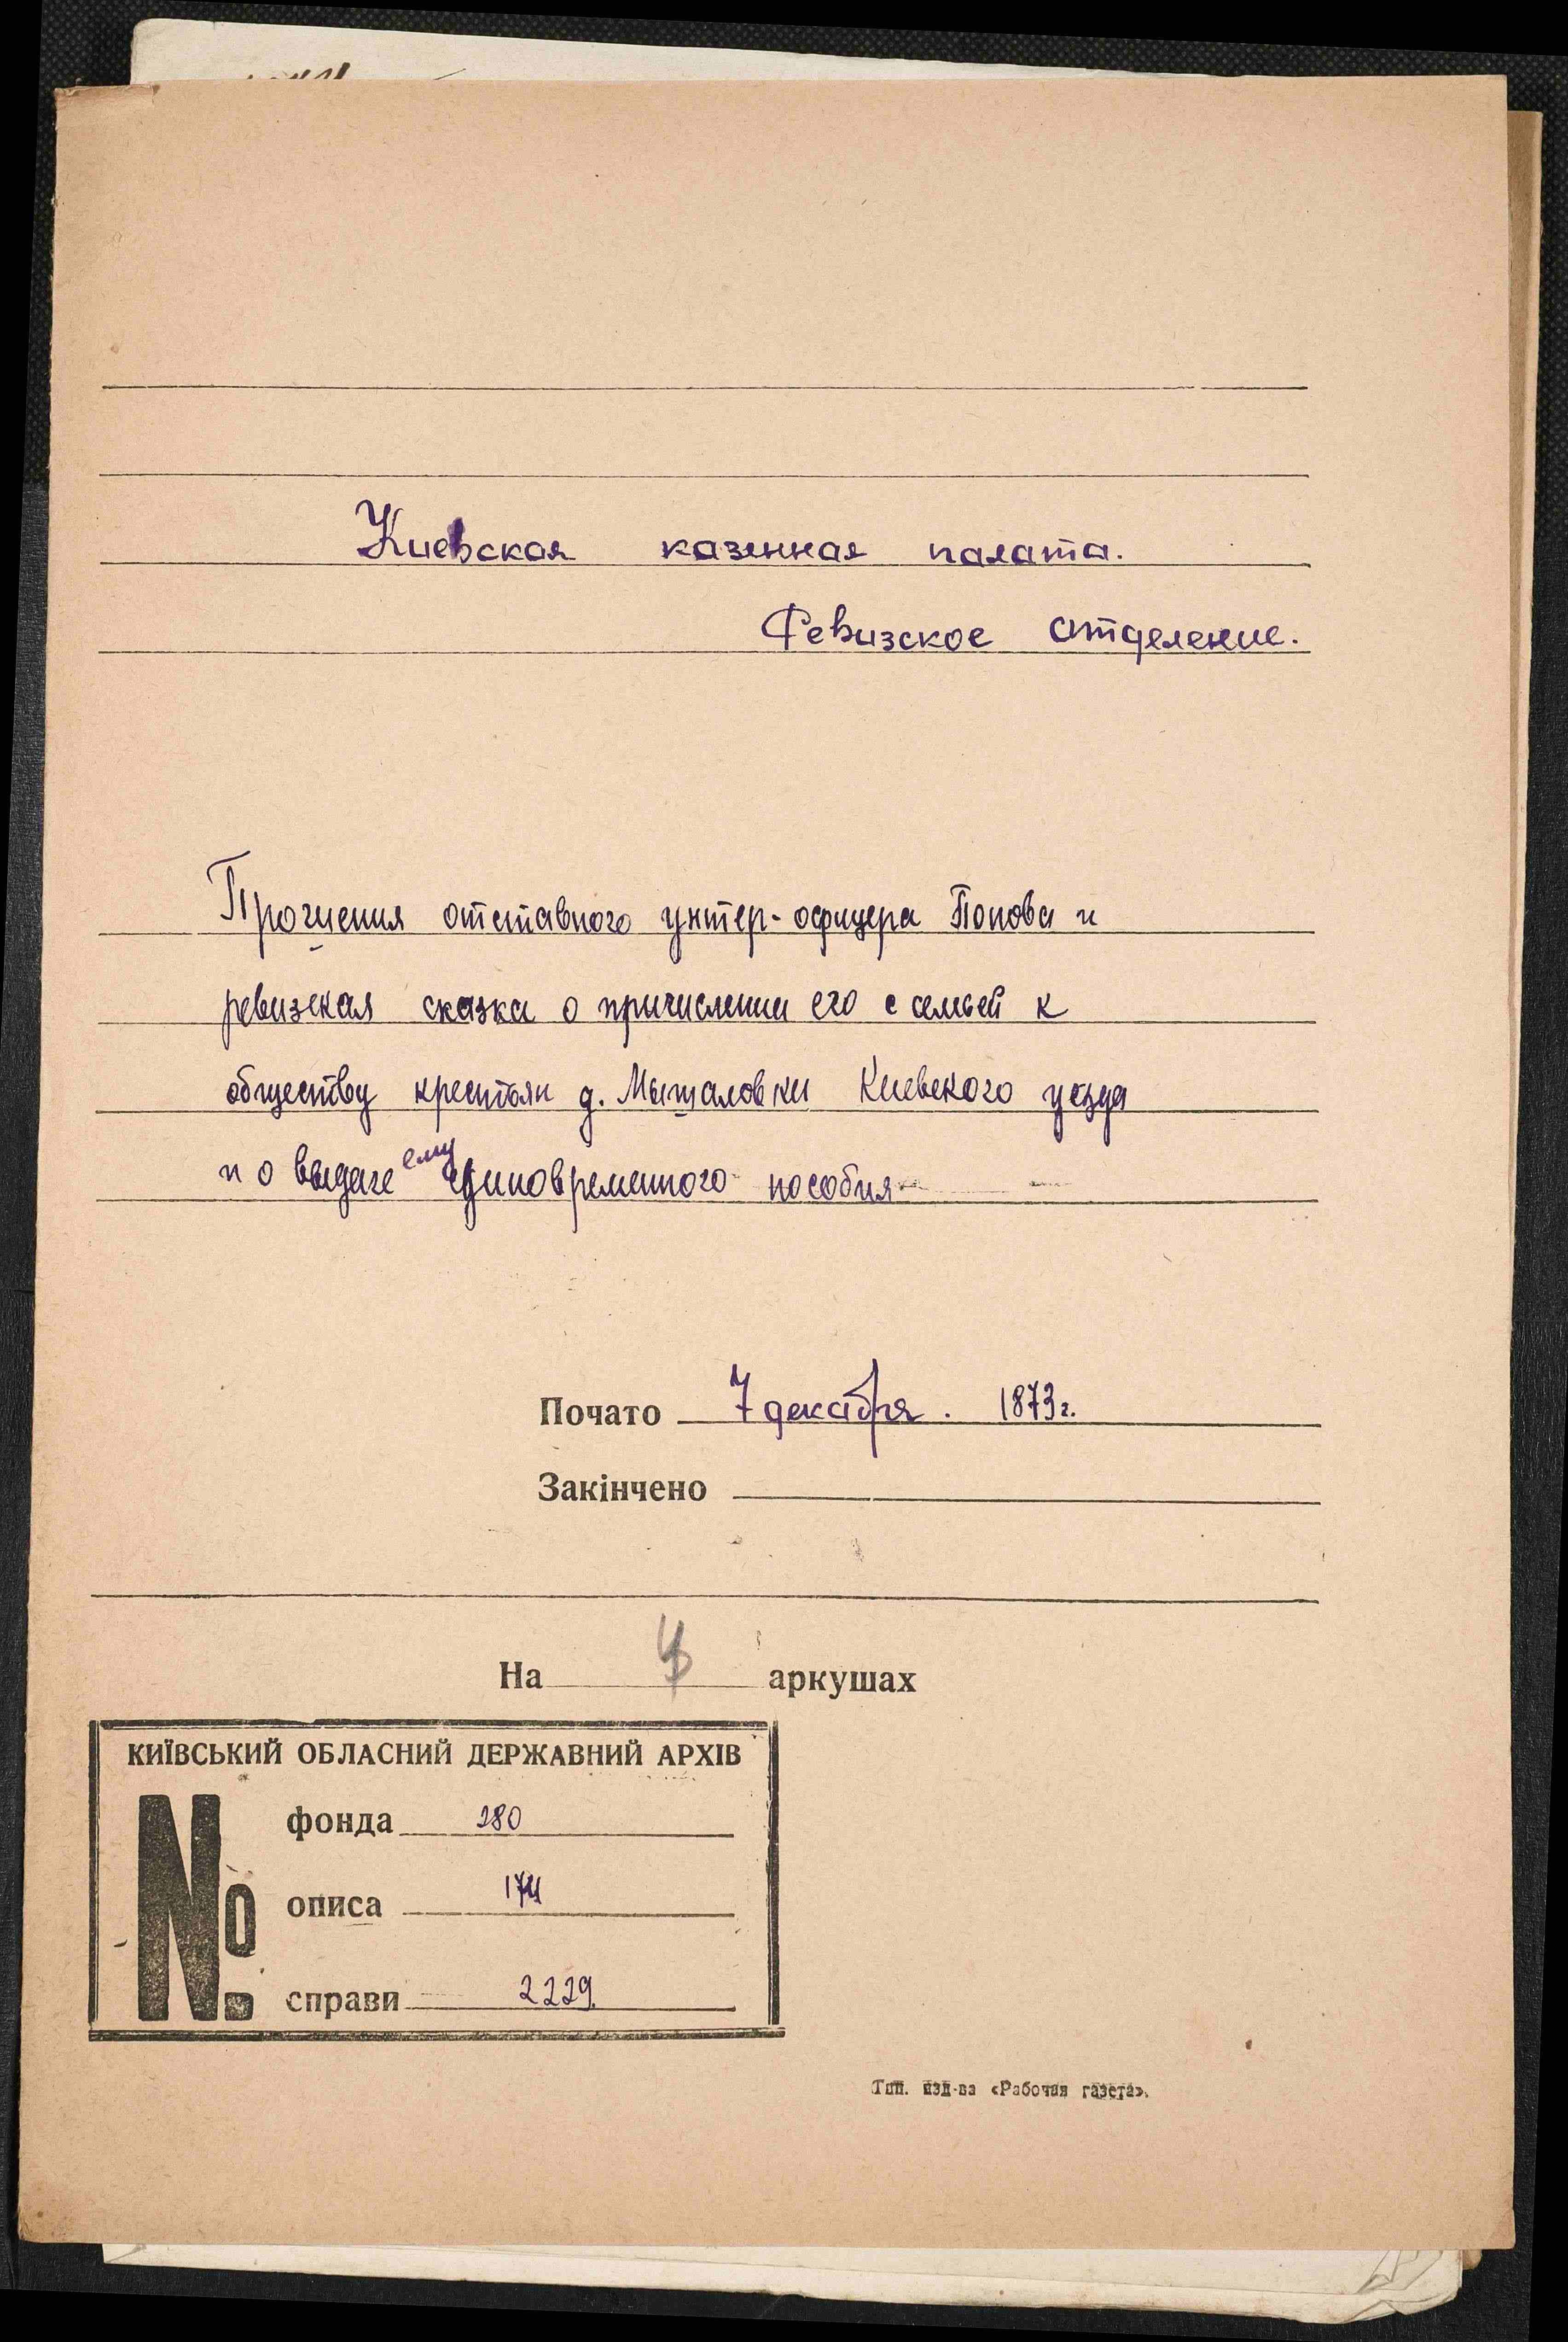 Киевская казенная палата.
Ревизское отделение.
Прошения отставного унтер-офицера Попова и
ревизская сказка о причислении его с семьей к
обществу крестьян д. Мышаловки Киевского уезда
и о выдаче ему единовременного пособия
Почато 7 декабря. 1873 г.
Закінчено
На аркушах
КИЇВСЬКИЙ ОБЛАСНИЙ ДЕРЖАВНИЙ АРХІВ
№ фонда 280
описа 174
справи 2229
Тип. изд-ва «Рабочая газета».